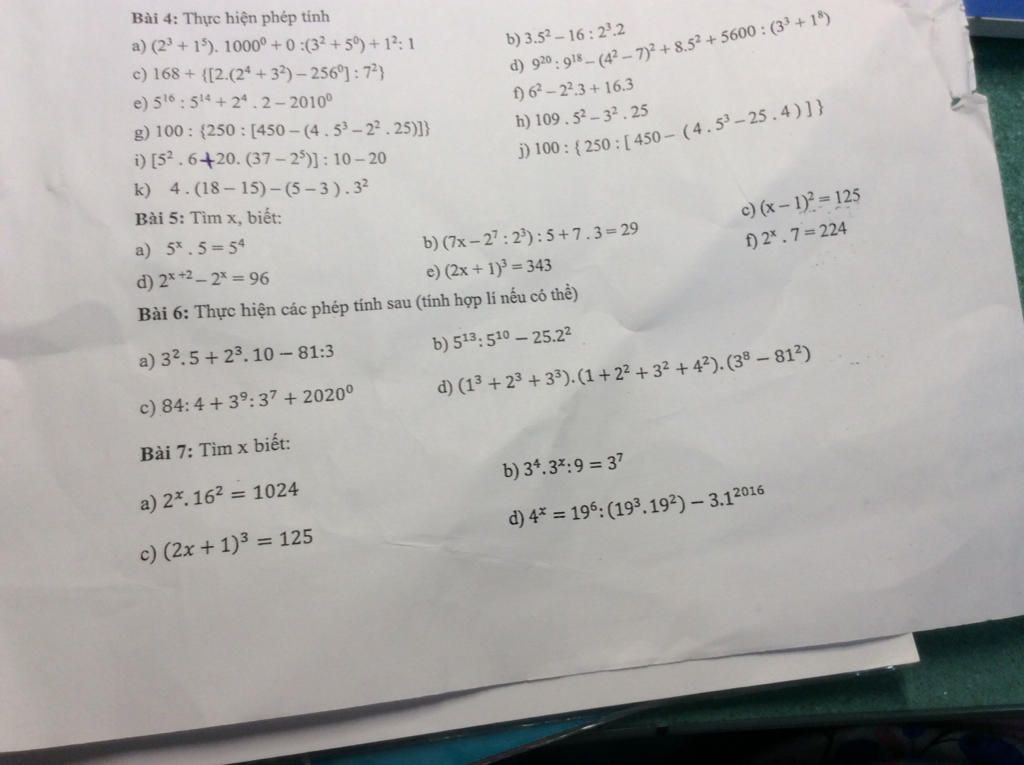 Bài 4: Thực hiện phép tính
a) (2³ + 1⁵). 1000⁰ + 0 :(3² + 5⁰) + 1²: 1
b) 3.5² – 16 : 2³.2
c) 168 + {[2.(2⁴ + 3²) – 256⁰] : 7²}
d) 9²⁰ : 9¹⁸ – (4² – 7)² + 8.5² + 5600 : (3³ + 1⁸)
e) 5¹⁶ : 5¹⁴ + 2⁴ . 2 – 2010⁰
f) 6² – 2².3 + 16.3
g) 100 : {250 : [450 – (4 . 5³ – 2² . 25)]}
h) 109 . 5² – 3² . 25
i) [5² . 6 + 20. (37 – 2⁵)] : 10 – 20
j) 100 : { 250 : [ 450 – ( 4 . 5³ – 25 . 4 ) ] }
k) 4 . (18 – 15) – (5 – 3 ) . 3²
Bài 5: Tìm x, biết:
a) 5ˣ . 5 = 5⁴
b) (7x – 2⁷ : 2³) : 5 + 7 . 3 = 29
c) (x – 1)² = 125
d) 2ˣ ⁺² – 2ˣ = 96
e) (2x + 1)³ = 343
f) 2ˣ . 7 = 224
Bài 6: Thực hiện các phép tính sau (tính hợp lí nếu có thể)
a) 3².5 + 2³.10 – 81:3
b) 5¹³:5¹⁰ – 25.2²
c) 84:4 + 3⁹:3⁷ + 2020⁰
d) (1³ + 2³ + 3³).(1 + 2² + 3² + 4²).(3⁸ – 81²)
Bài 7: Tìm x biết:
a) 2ˣ.16² = 1024
b) 3⁴.3ˣ:9 = 3⁷
c) (2x + 1)³ = 125
d) 4ˣ = 19⁶:(19³.19²) – 3.1²⁰¹⁶